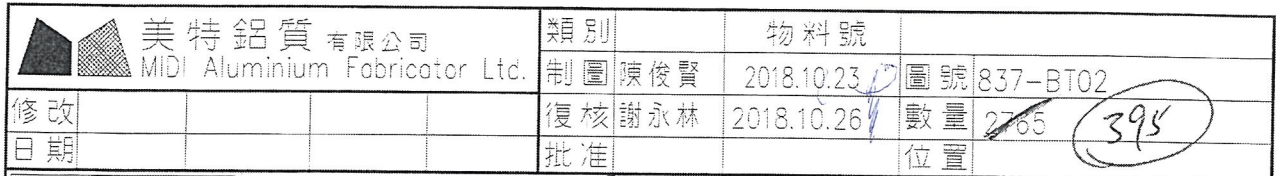 美特鋁質有限公司
MIDI Aluminium Fabricator Ltd.
類別 物料號
制圖 陳俊賢 2018.10.23 圖號 837-BT02
修改 復核 謝永林 2018.10.26 數量 2765 395
日期 批准 位置